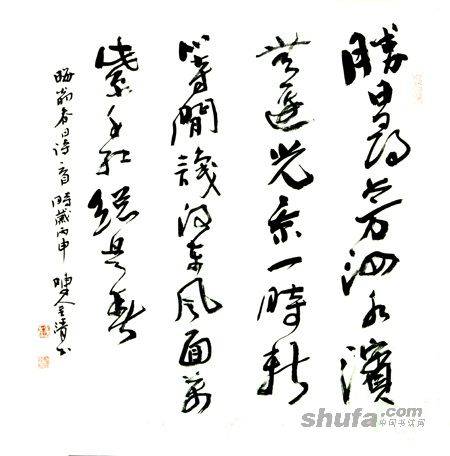 勝日尋芳泗水濱
無邊光景一時新
等閒識得東風面萬
紫千紅總是春
晦翁春日诗一首時歲丙申
shufa.com
中国书法网